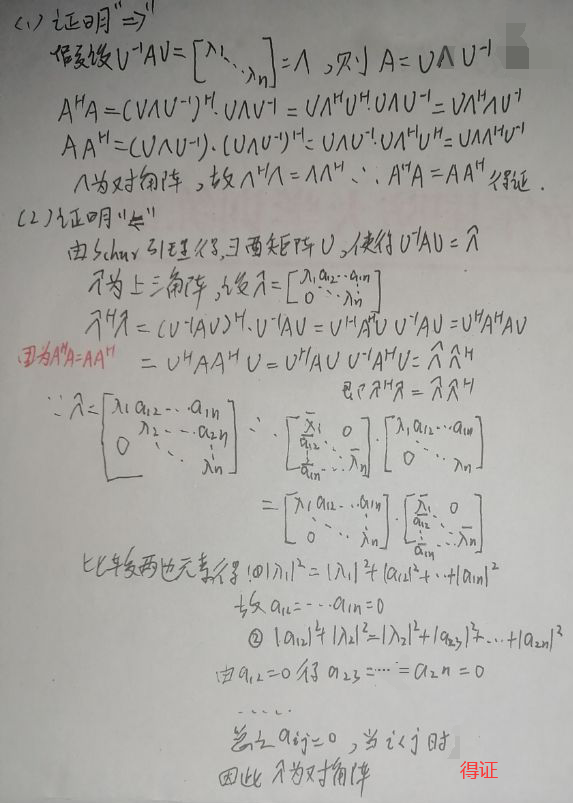 (1) 证明"⇒"
假设 U⁻¹AU = [λ₁ ⋱ λn] = Λ, 则 A = UΛU⁻¹
AᴴA = (UΛU⁻¹)ᴴ·UΛU⁻¹ = UΛᴴUᴴ·UΛU⁻¹ = UΛᴴΛU⁻¹
AAᴴ = (UΛU⁻¹)·(UΛU⁻¹)ᴴ = UΛU⁻¹·UΛᴴUᴴ = UΛΛᴴU⁻¹
Λ为对角阵, 故ΛᴴΛ = ΛΛᴴ ∴ AᴴA = AAᴴ 得证.
(2) 证明"⇐"
由Schur引理得, ∃酉矩阵U, 使得 U⁻¹AU = Λ̂
Λ̂为上三角阵, 设Λ̂ = [λ₁ a₁₂ ⋯ a₁n ⋱ ⋮ 0 λn]
Λ̂ᴴΛ̂ = (U⁻¹AU)ᴴ·U⁻¹AU = UᴴAᴴU U⁻¹AU = UᴴAᴴAU
因为AᴴA=AAᴴ = UᴴAAᴴU = UᴴAU U⁻¹AᴴU = Λ̂Λ̂ᴴ
即Λ̂ᴴΛ̂ = Λ̂Λ̂ᴴ
∵ Λ̂ = [λ₁ a₁₂ ⋯ a₁n λ₂ ⋯ a₂n 0 ⋱ ⋮ λn] ∴ [λ̄₁ 0 ā₁₂ ⋮ ⋱ ā₁n ⋯ λ̄n]·[λ₁ a₁₂ ⋯ a₁n ⋱ ⋮ 0 λn]
= [λ₁ a₁₂ ⋯ a₁n ⋱ ⋮ 0 λn]·[λ̄₁ 0 ā₁₂ ⋮ ⋱ ā₁n ⋯ λ̄n]
比较两边元素得: ①|λ₁|² = |λ₁|² + |a₁₂|² + ⋯ + |a₁n|²
故 a₁₂ = ⋯ a₁n = 0
② |a₁₂|² + |λ₂|² = |λ₂|² + |a₂₃|² + ⋯ + |a₂n|²
由a₁₂=0 得 a₂₃ = ⋯ = a₂n = 0
......
总之 aij = 0, 当 i<j 时
因此 Λ̂为对角阵
得证